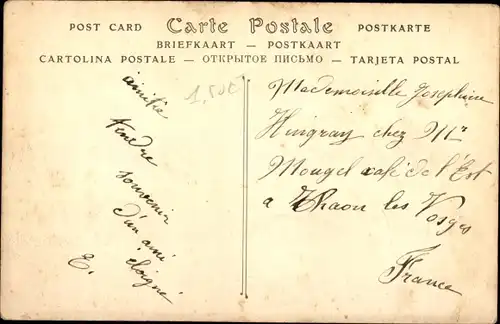 POST CARD Carte Postale POSTKARTE
BRIEFKAART — POSTKAART
CARTOLINA POSTALE — ОТКРЫТОЕ ПИСЬМО — TARJETA POSTAL
amitié
tendre
souvenir
d'un ami
éloigné
E.
Mademoiselle Josephine
Hingray chez Mr
Mougel café de l'Est
a Thaon les Vosges
France